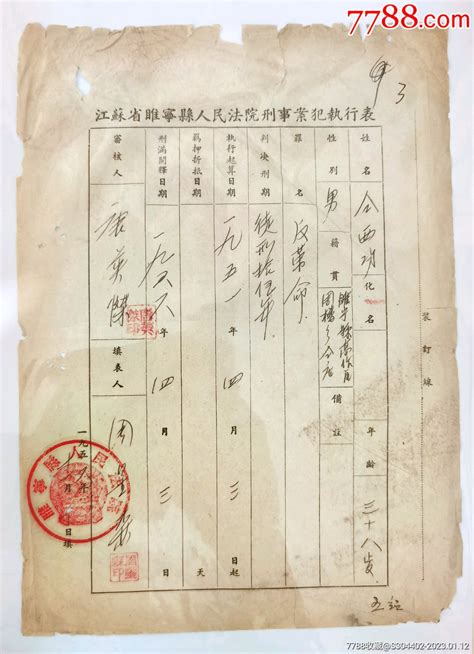 7788.com
3
江蘇省睢寧縣人民法院刑事案犯執行表
姓名 仝西功 化名 年齡 三十八岁
性別 男 籍貫
備註
罪名 反革命
判决刑期 徒刑拾伍年
執行起算日期 一九五一年四月三日起
羁押折抵日期 天
刑滿開釋日期 一九六六年四月三日
審核人 填表人 周
一九五 年 月 日填
睢寧縣人民法院
裝訂線
7788收藏@S304402-2023.01.12